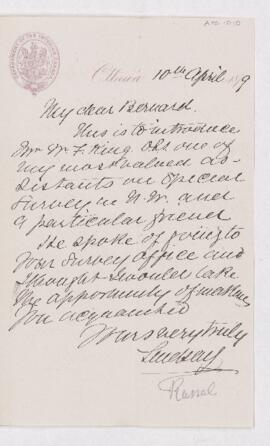 Ottawa 10th April 1879
My dear Bernard.
This is to introduce
Mr W. F. King one of
my most valued as-
sistants on Special
Survey in N.W. and
a particular friend
He spoke of going to
your Survey Office and
I thought I would take
the opportunity of making
you acquainted
Yours very truly
Lindsay
Russell